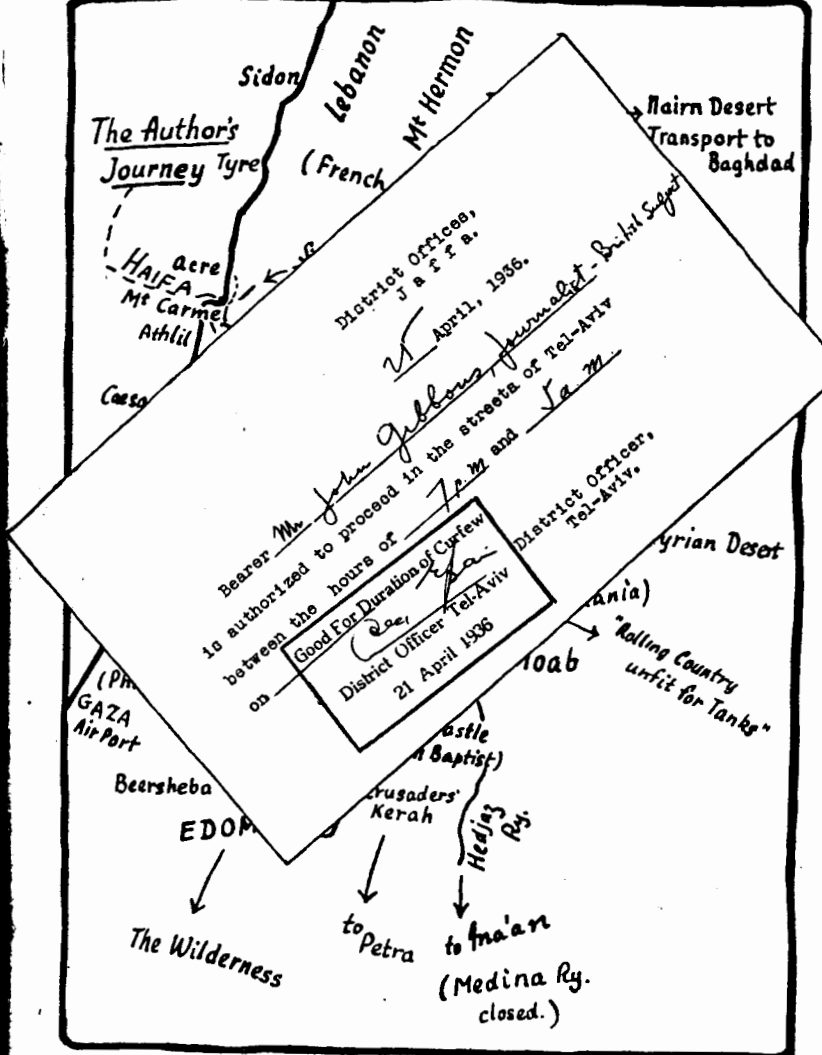 Sidon
Lebanon
Mt Hermon
Nairn Desert
Transport to
Baghdad
The Author's
Journey
Tyre
(French
acre
HAIFA
Mt Carmel
Athlil
Caesa
District Offices,
Jaffa.
April, 1936.
Bearer Mr John Gibbons, Journalist - British Subject
is authorized to proceed in the streets of Tel-Aviv
between the hours of 7 p.m and 5 a.m.
on
District Officer,
Tel-Aviv.
Good For Duration of Curfew
District Officer Tel-Aviv
21 April 1936
yrian Desert
ania)
"Rolling Country
unfit for Tanks"
loab
(Ph
GAZA
Air Port
astle
n Baptist)
Beersheba
rusaders'
Kerah
EDOM
Hedjaz
Ry.
The Wilderness
to
Petra
to Ma'an
(Medina Ry.
closed.)